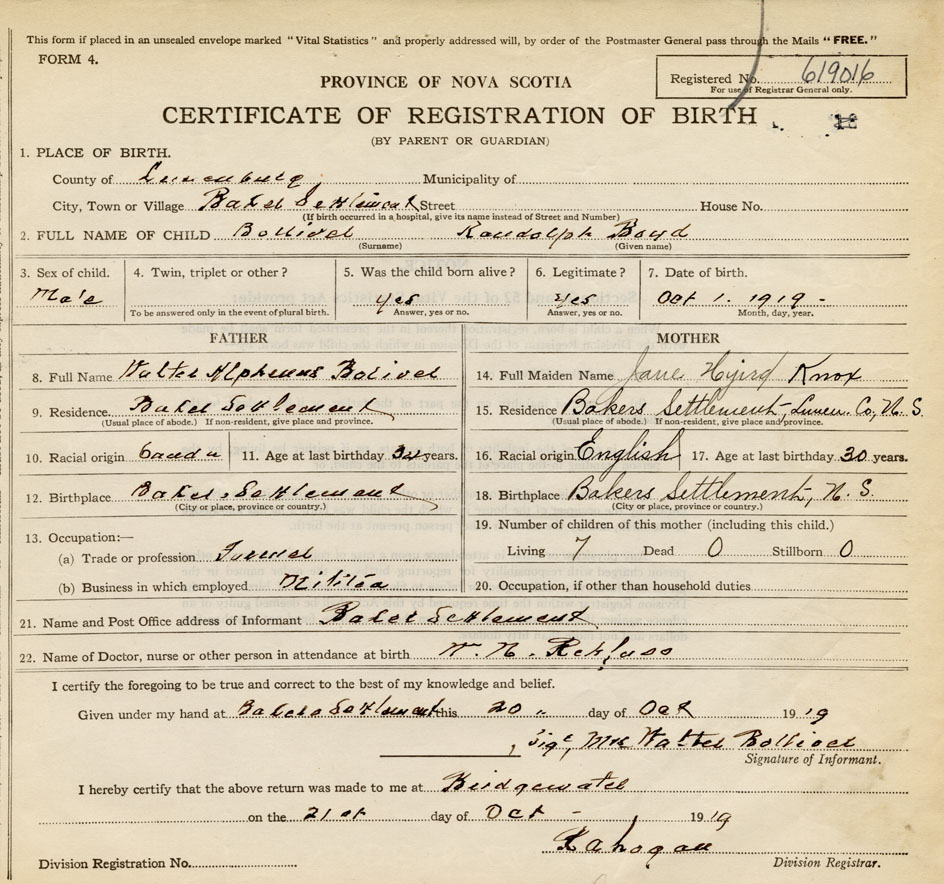 This form if placed in an unsealed envelope marked "Vital Statistics" and properly addressed will, by order of the Postmaster General pass through the Mails "FREE."
FORM 4.
Registered No. 619016
For use of Registrar General only.
PROVINCE OF NOVA SCOTIA
CERTIFICATE OF REGISTRATION OF BIRTH
(BY PARENT OR GUARDIAN)
1. PLACE OF BIRTH.
County of Lunenburg Municipality of
City, Town or Village Baker Settlement Street House No.
(If birth occurred in a hospital, give its name instead of Street and Number)
2. FULL NAME OF CHILD Bolliver Randolph Boyd
(Surname) (Given name)
3. Sex of child. 4. Twin, triplet or other? 5. Was the child born alive? 6. Legitimate? 7. Date of birth.
Male yes yes Oct 1. 1919 -
To be answered only in the event of plural birth. Answer, yes or no. Answer, yes or no. Month, day, year.
FATHER
8. Full Name Walter Bolivel
9. Residence. Baker Settlement
(Usual place of abode.) If non-resident, give place and province.
10. Racial origin 11. Age at last birthday years.
12. Birthplace Baker Settlement
(City or place, province or country.)
13. Occupation:—
(a) Trade or profession
(b) Business in which employed
MOTHER
14. Full Maiden Name Jane Knox
15. Residence Bakers Settlement, Lunen. Co, N. S.
(Usual place of abode.) If non-resident, give place and province.
16. Racial origin English 17. Age at last birthday 30 years.
18. Birthplace Bakers Settlement, N. S.
(City or place, province or country.)
19. Number of children of this mother (including this child.)
Living 7 Dead 0 Stillborn 0
20. Occupation, if other than household duties
21. Name and Post Office address of Informant Baker Settlement
22. Name of Doctor, nurse or other person in attendance at birth
I certify the foregoing to be true and correct to the best of my knowledge and belief.
Given under my hand at Bakers Settlement this 20 " day of Oct 1919
Sigt, Mrs Walter Bolliver
Signature of Informant.
I hereby certify that the above return was made to me at Bridgewater
on the 21st day of Oct - 1919
Division Registration No.
Division Registrar.